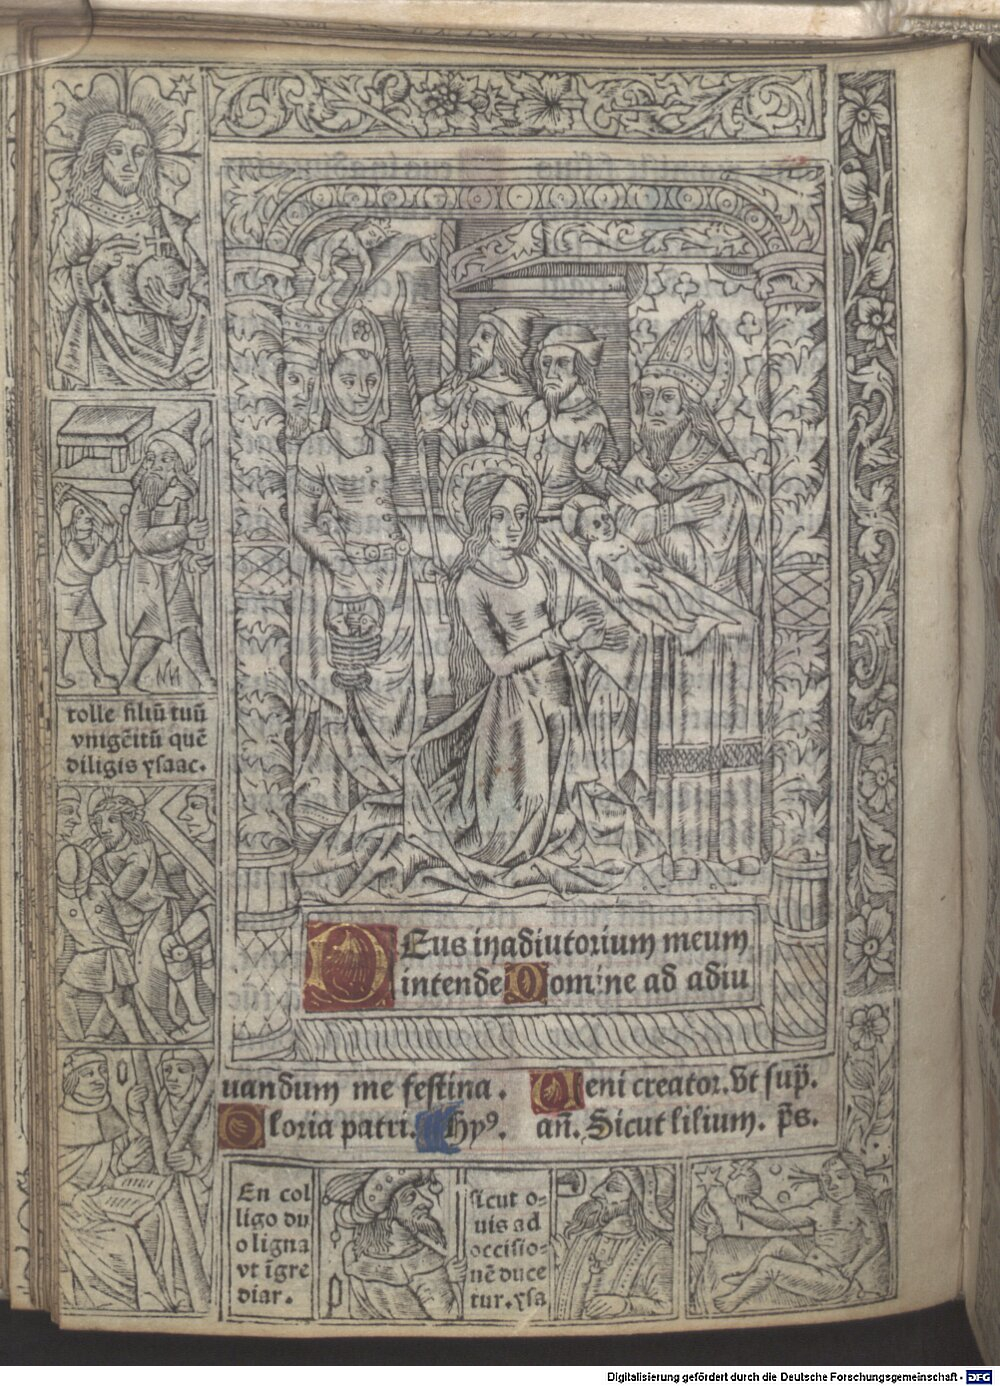 tolle filiū tuū
vnigēitū quē
diligis ysaac.
DEus in adiutorium meum
intende Domine ad adiu
uandum me festina. Ueni creator. vt sup̄.
Gloria patri. Hyꝰ. an̄. Sicut lilium. p̄s.
En col
ligo du
o ligna
vt īgre
diar.
sicut o-
uis ad
occisio-
nē duce
tur. ysa
Digitalisierung gefördert durch die Deutsche Forschungsgemeinschaft - DFG